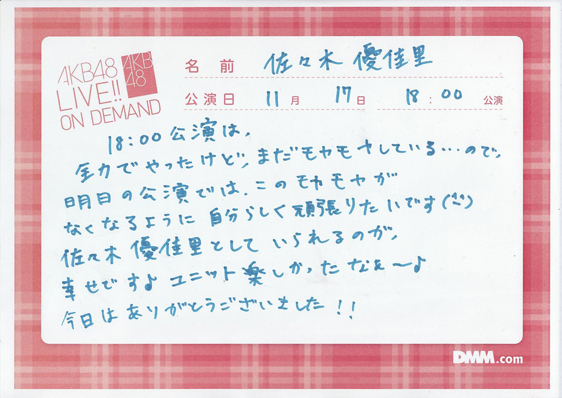 AKB48
LIVE!!
ON DEMAND
AKB
48
名前 佐々木 優佳里
公演日 11月 17日 18:00 公演
18:00公演は、
全力でやったけど、まだモヤモヤしている…ので、
明日の公演では、このモヤモヤが
なくなるように 自分らしく頑張りたいです(
佐々木優佳里として いられるのが、
幸せですよ ユニット楽しかったなぁ〜♪
今日はありがとうございました!!
DMM.com